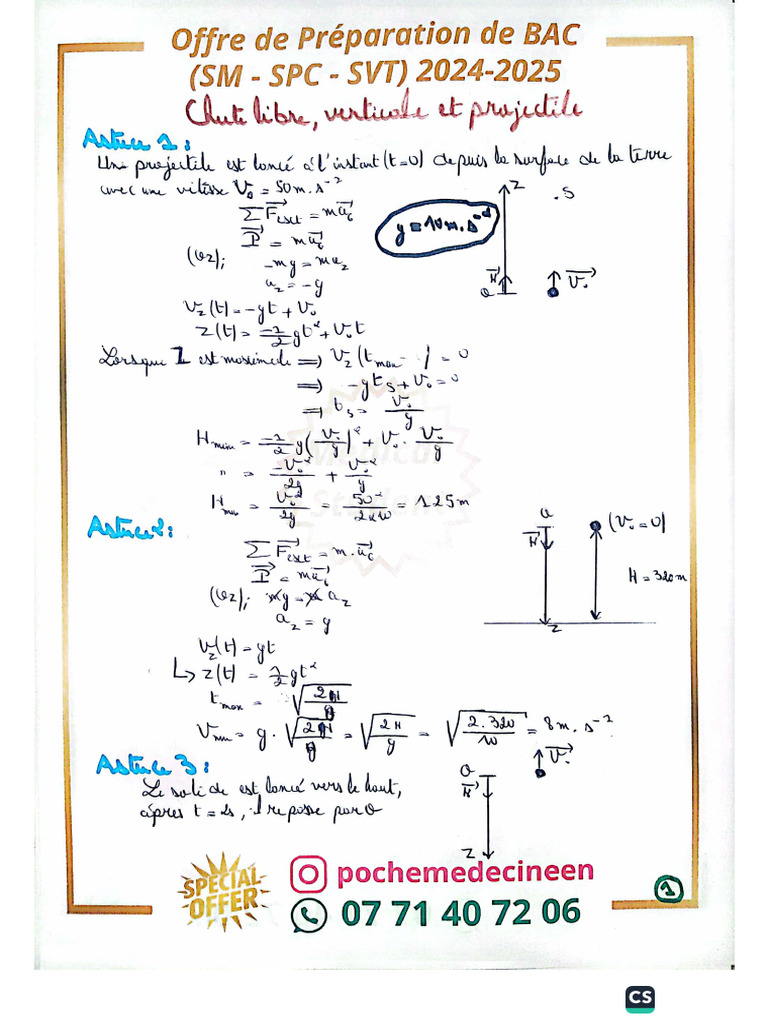 Offre de Préparation de BAC
(SM - SPC - SVT) 2024-2025
Chute libre, verticale et projectile
Astuce 1 :
Un projectile est lancé à l'instant (t=0) depuis la surface de la terre
avec une vitesse V₀ = 50m.s⁻²
Z
.S
∑F⃗ext = ma⃗G
g = 10m.s⁻²
P⃗ = ma⃗G
(oz); -mg = maz
az = -g
k⃗
O
V⃗₀
Vz(t) = -gt + V₀
Z(t) = -1/2 gt² + V₀t
Lorsque Z est maximale => Vz(tmax) = 0
=> -gts + V₀ = 0
=> ts = V₀/g
Hmax = -1/2 g(V₀/g)² + V₀ . V₀/g
" = -V₀²/2g + V₀²/g
Hmax = V₀²/2g = 50²/2x10 = 125m
Medical
Student
Astuce 2 :
O
(V₀=0)
k⃗
H = 320m
Z
∑F⃗ext = m.a⃗G
P⃗ = ma⃗G
(oz); mg = m az
az = g
Vz(t) = gt
↳ Z(t) = 1/2 gt²
tmax = √2H/g
Vmax = g . √2H/g = √2H/g = √2.320/10 = 8m.s⁻²
Astuce 3 :
O
k⃗
V⃗₀
Z
Le solide est lancé vers le haut,
après t = 2s, il repasse par O
SPECIAL
OFFER
pochemedecineen
07 71 40 72 06
1
CS